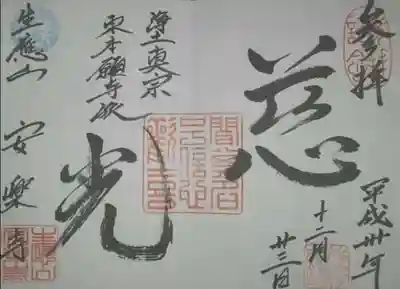 参拝
平成卅年
十二月
廿三日
慈
光
浄土真宗
東本願寺派
生應山 安樂寺